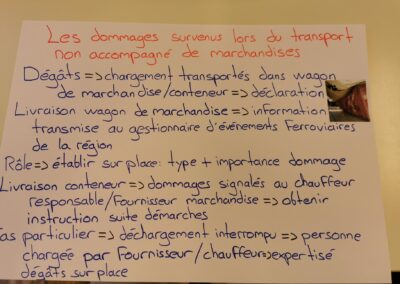 Les dommages survenus lors du transport
non accompagné de marchandises
Dégâts => chargement transportés dans wagon
de marchandise/conteneur => déclaration
Livraison wagon de marchandise => information
transmise au gestionnaire d'événements Ferroviaires
de la région
Rôle => établir sur place: type + importance dommage
Livraison conteneur => dommages signalés au chauffeur
responsable/Fournisseur marchandise => obtenir
instruction suite démarches
as particulier => déchargement interrompu => personne
chargée par Fournisseur/chauffeur => expertisé
dégâts sur place